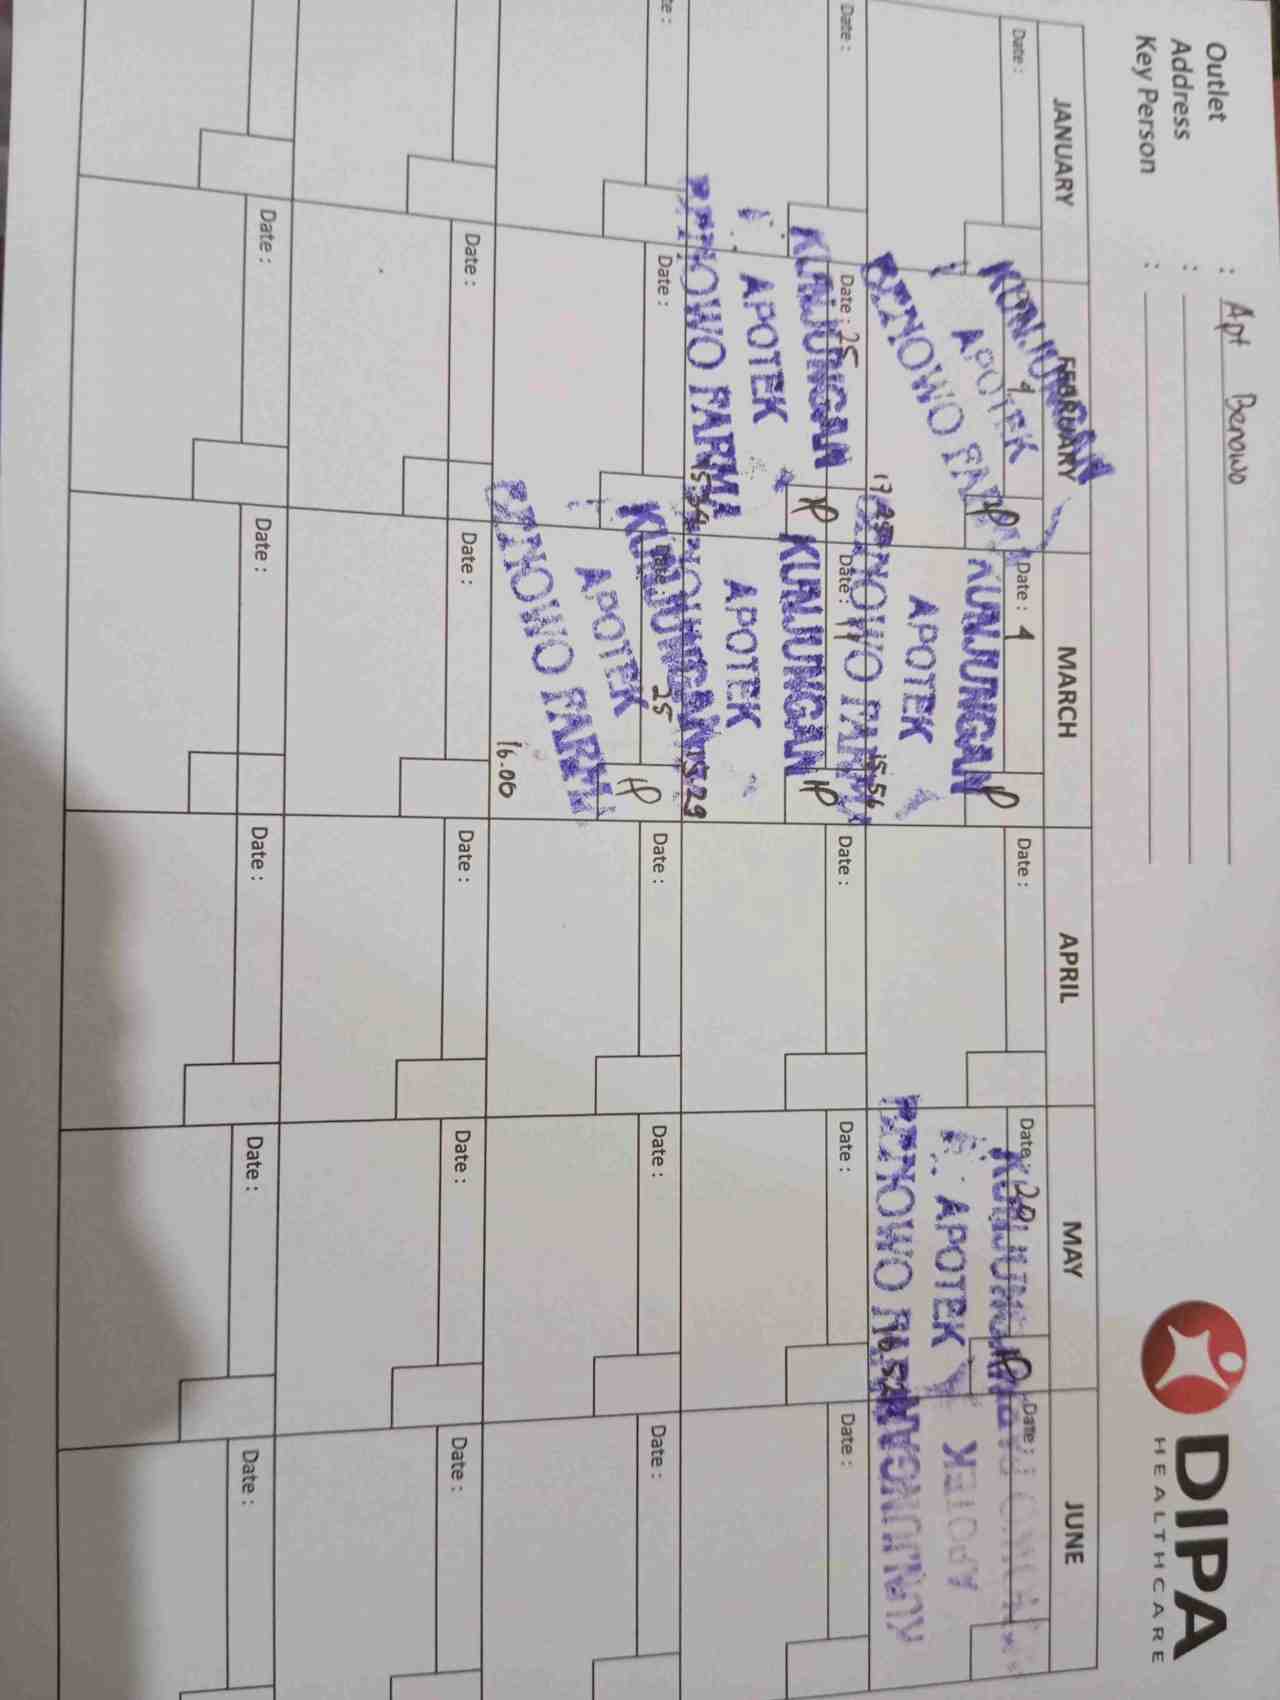 Outlet : Apt Benowo
Address :
Key Person :
DIPA
HEALTHCARE
JANUARY FEBRUARY MARCH APRIL MAY JUNE
Date : 4 Date : 4 Date : Date : 20 Date :
KUNJUNGAN KUNJUNGAN KUNJUNGAN
APOTEK APOTEK APOTEK APOTEK
BENOWO FARMA BENOWO FARMA BENOWO FARMA KUNJUNGAN
17.25 15.56 16.52
Date : Date : 25 Date : 11 Date : Date : Date :
KUNJUNGAN KUNJUNGAN
APOTEK APOTEK
BENOWO FARMA BENOWO
15.54 15.29
Date : Date : 25 Date : Date : Date :
KUNJUNGAN
APOTEK
BENOWO FARMA
16.06
Date : Date : Date : Date : Date :
Date : Date : Date : Date : Date :